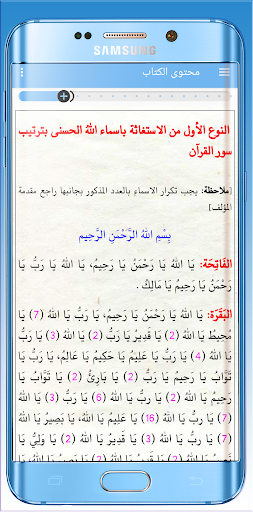 SAMSUNG
محتوى الكتاب
النوع الأول من الاستغاثة باسماء اللهُ الحسنى بترتيب
سور القرآن
[ملاحظة: يجب تكرار الاسماء بالعدد المذكور بجانبها راجع مقدمة
المؤلف]
بِسْمِ اللهُ الرَّحْمَنِ الرَّحِيمِ
الفَاتِحَة: يَا اللهُ يَا رَحْمَنُ يَا رَحِيمُ، يَا اللهُ يَا رَبُّ يَا
رَحْمَنُ يَا رَحِيمُ يَا مَالِكُ .
البَقَرَة: يَا اللهُ يَا رَحْمَنُ يَا رَحِيمُ، يَا اللهُ (7) يَا
مُحِيطُ يَا اللهُ (2) يَا قَدِيرُ يَا رَبُّ (2) يَا اللهُ (3) يَا رَبُّ
يَا اللهُ (4) يَا رَبُّ يَا عَلِيمُ يَا حَكِيمُ يَا عَالِمُ، يَا رَبُّ يَا
تَوَّابُ يَا رَحِيمُ يَا رَبُّ يَا اللهُ (2) يَا بَارِئُ (2) يَا تَوَّابُ يَا
رَحِيمُ يَا اللهُ (2) يَا رَبُّ (2) يَا اللهُ (5) يَا رَبُّ يَا اللهُ
(7) يَا ربُّ يَا اللهُ (15) يَا عَلِيمُ يَا اللهُ، يَا بَصِيرُ يَا اللهُ
(7) يَا رَبُّ يَا اللهُ (3) يَا قَدِيرُ يَا اللهُ (2) يَا وَلِيُّ يَا